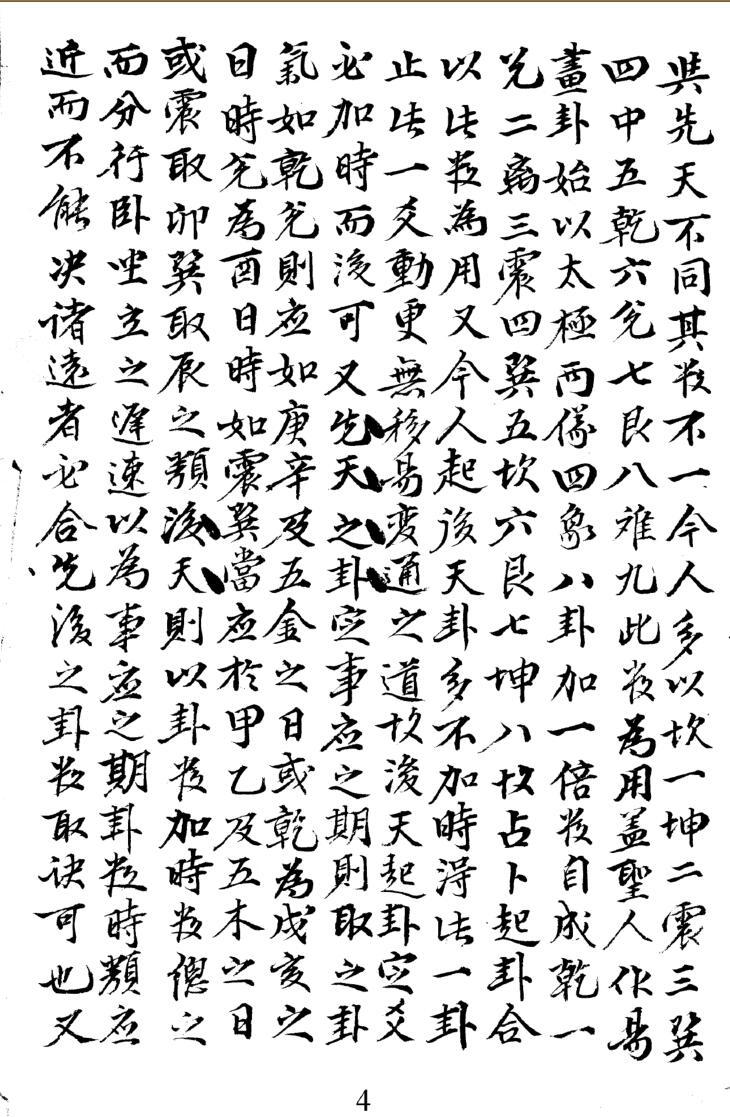 與先天不同其數不一今人多以坎一坤二震三巽
四中五乾六兌七艮八離九此數為用蓋聖人作易
畫卦始以太極兩儀四象八卦加一倍數自成乾一
兌二離三震四巽五坎六艮七坤八故占卜起卦合
以此數為用又今人起後天卦多不加時得此一卦
止此一爻動更無移易变通之道故後天起卦定爻
必加時而後可又先天之卦定事应之期則取之卦
氣如乾兌則应如庚辛及五金之日或乾為戌亥之
日時兌為酉日時如震巽當应於甲乙及五木之日
或震取卯巽取辰之類後天則以卦數加時數總之
而分行卧坐立之遲速以為事应之期卦數時類应
近而不能决诸遠者必合先後之卦數取诀可也又
4